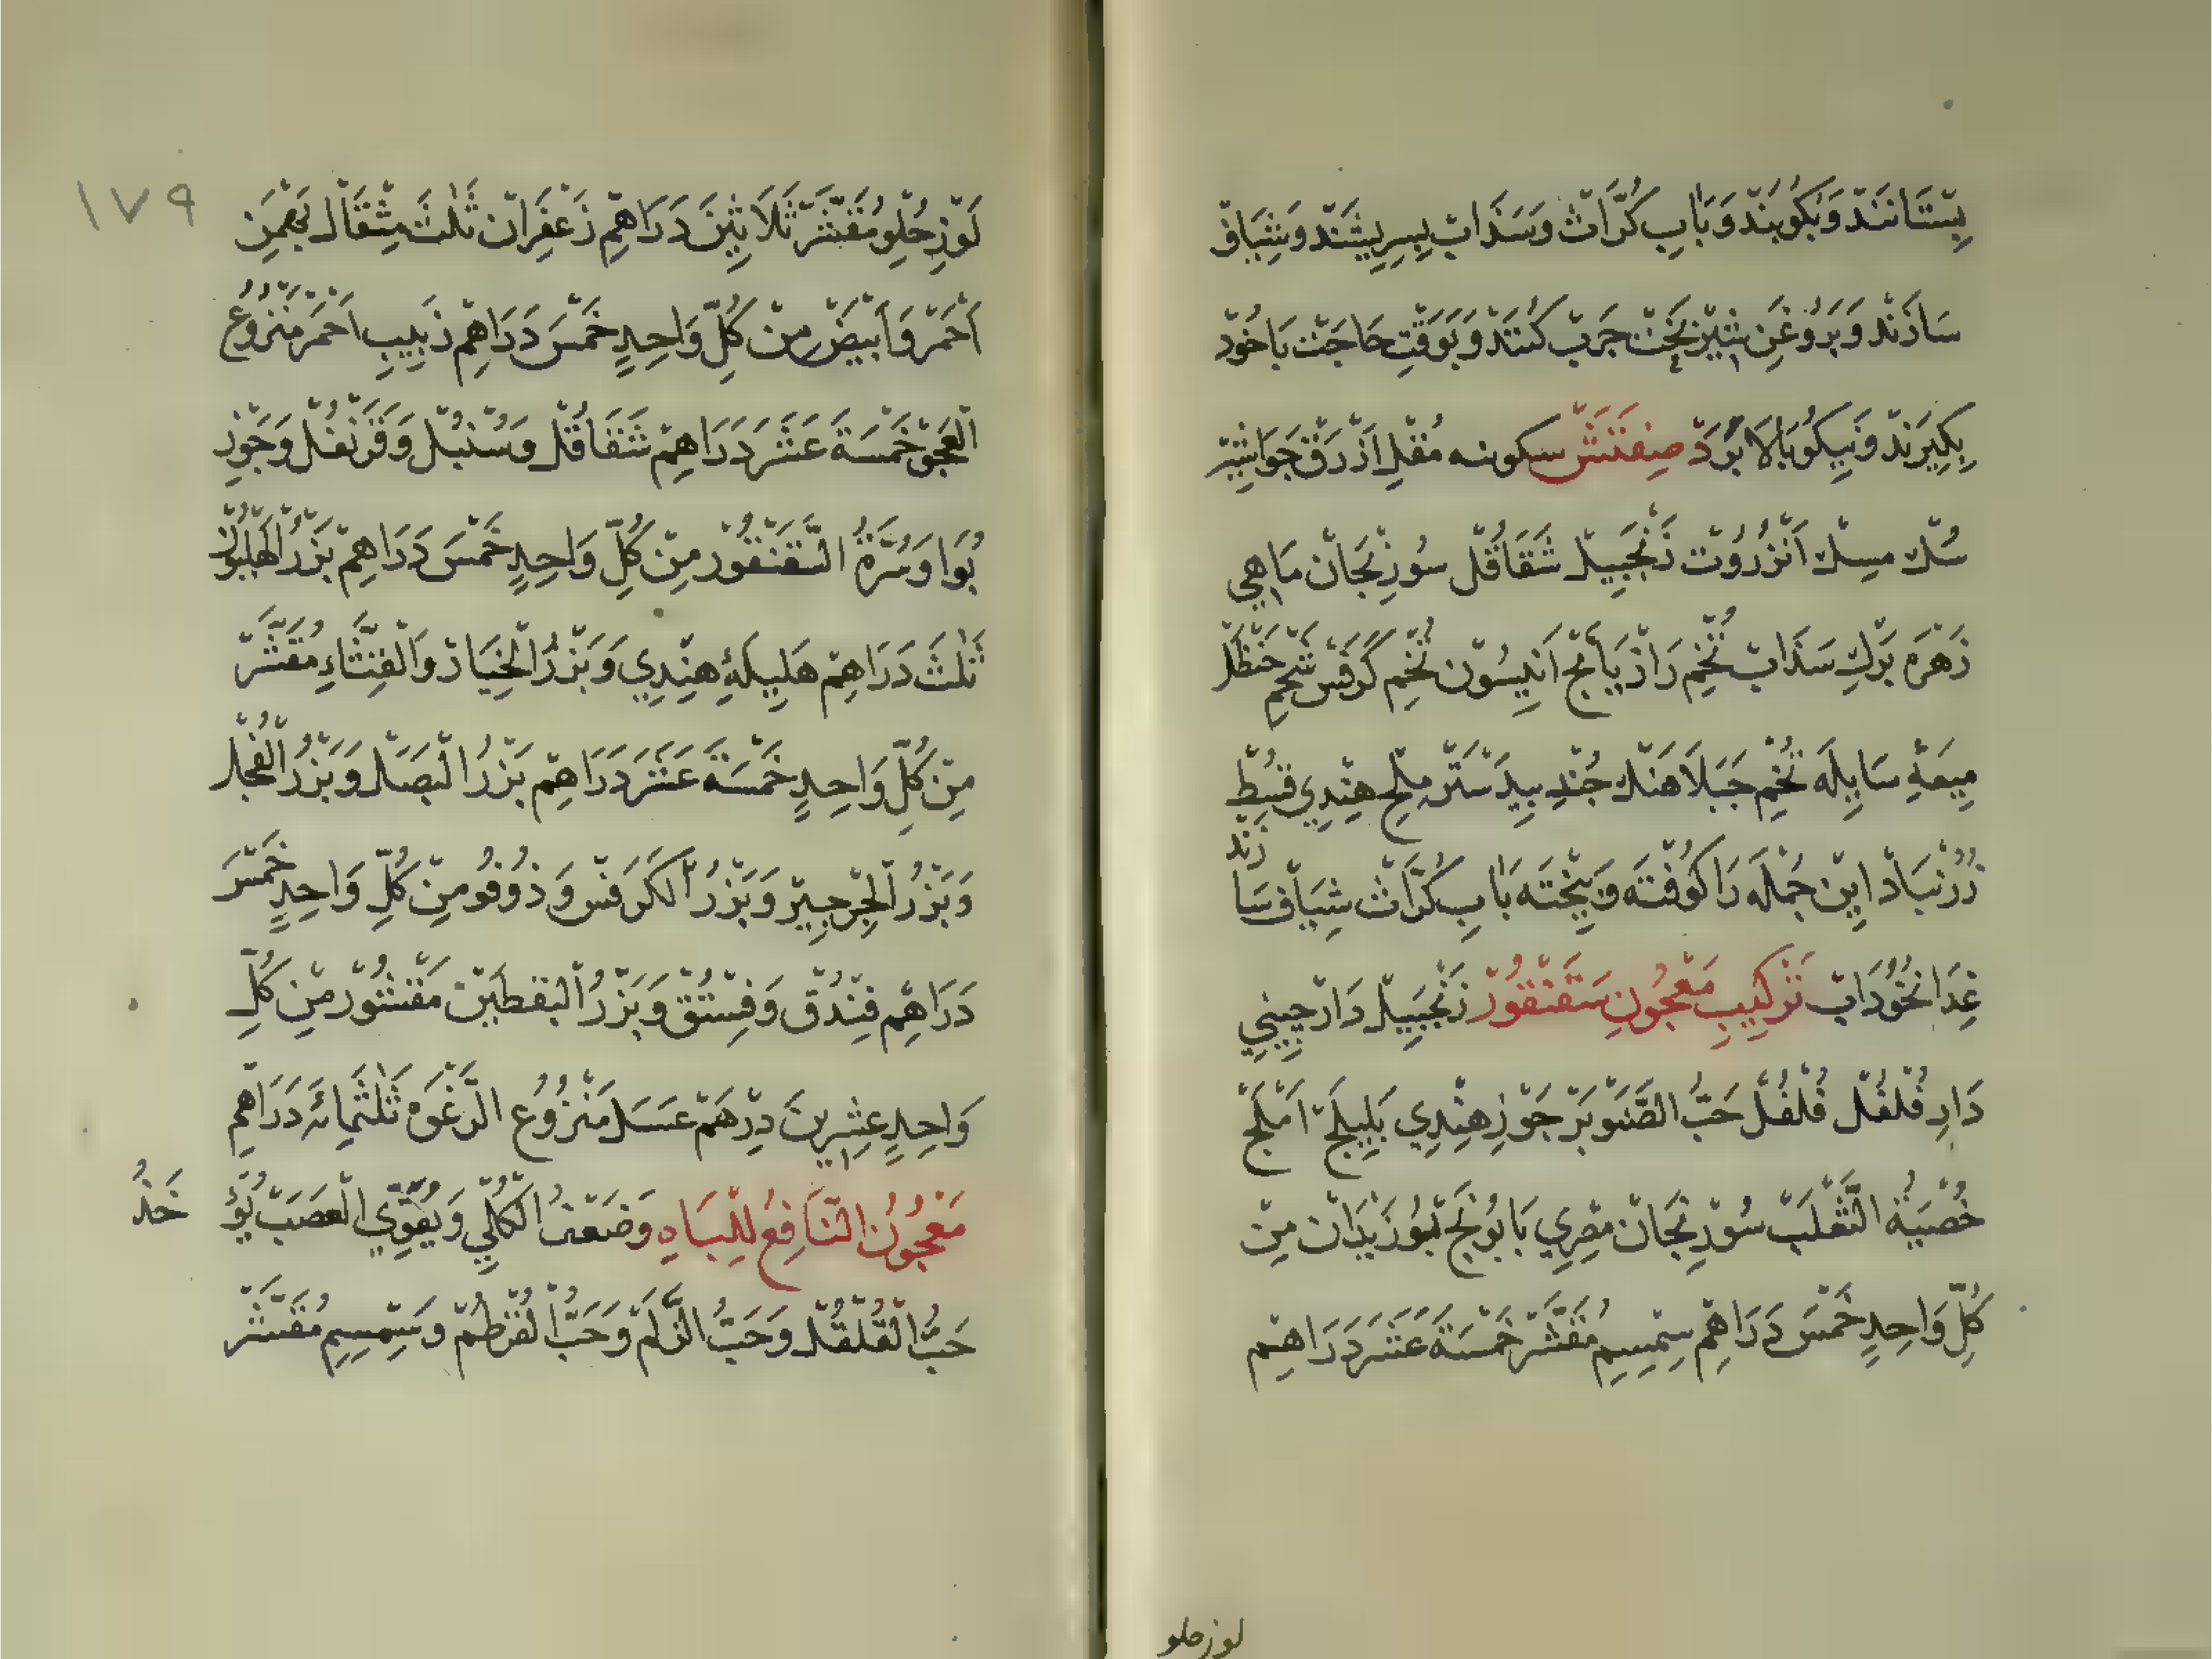 بِسْتَانَنْدْ وَبِكُوبَنْدْ وَبَابِ كُرَّاثْ وَسَذَابْ بِسِرِيشَنْدْ وَشِيَافْ
سَازَنْدْ وَبَرُوغَنِ شِيْرْبَخْتْ جَرَبْ كُنَنْدْ وَبَوَقْتِ حَاجَتْ بَاخُودْ
بِكِيرَنْدْ وَنِيكُو بَالَا بَرَدْ صِفَتَشْ سكونه مُقْلِ اَزْرَقْ جَوَاشِيْرْ
سُكْ مسِكْ اَنْزَرُوُتْ زَنْجَبِيلْ شَقَاقُلْ سُورِنْجَانْ مَاهِي
زَهْرَه بَرْكِ سَذَابْ تُخْمِ رَازْيَانَجْ اَنِيسُونْ تُخْمِ كَرَفْسْ شَحْمِ حَنْظَلْ
مِيعَهِٔ سَايِلَه تُخْمِ جَبَلَاهَنْكْ جُنْدِ بِيدَسْتَرْ مِلْحِ هِنْدِي قُسْطِ
زُرُنْبَادْ اِيْن جُمْلَه رَا كُوفْتَه وَبِيخْتَه بَابِ كُرَّاثْ شِيَافْ سَا زَنْد
غِذَا نَخُودَابْ تَرْكِيبِ مَعْجُونِ سَقَنْقُورْ زَنْجَبِيلْ دَارْچِينِي
دَارِ فُلْفُلْ فُلْفُلْ حَبُّ الصَّنَوْبَرْ جَوْزِ هِنْدِي بَلِيلَجْ اَمْلَجْ
خُصْيَةُ الثَّعْلَبْ سُوْرِنْجَانْ مِصْرِي بَابُونَجْ بُوزَيْدَانْ مِنْ
كُلِّ وَاحِدٍ خَمْسَ دَرَاهِمْ سِمْسِمِ مُقَشَّرْ خَمْسَةَ عَشَرَ دَرَاهِمْ
لوز حلو
١٧٩
لَوْزِ حُلْوِ مُقَشَّرْ ثَلَاثِينَ دَرَاهِمْ زَعْفَرَانْ ثَلٰثَ مِثْقَالْ بَهْمَنِ
اَحْمَرْ وَاَبْيَضْ مِنْ كُلِّ وَاحِدٍ خَمْسَ دَرَاهِمْ زَبِيبِ اَحْمَرْ مَنْزُوعُ
الْعَجَمْ خَمْسَةَ عَشَرَ دَرَاهِمْ شَقَاقُلْ وَسُنْبُلْ وَقَرَنْفُلْ وَجَوْزِ
بُوَا وَسُرَّةُ السَّقَنْقُورْ مِنْ كُلِّ وَاحِدٍ خَمْسَ دَرَاهِمْ بَزْرُ الْهِلْيَوْنْ
ثَلٰثَ دَرَاهِمْ هَلِيلَهِٔ هِنْدِي وَبَزْرُ الْخِيَارْ وَالْقِثَّاءِ مُقَشَّرْ
مِنْ كُلِّ وَاحِدٍ خَمْسَةَ عَشَرَ دَرَاهِمْ بَزْرُ الْبَصَلْ وَبَزْرُ الْفُجْلْ
وَبَزْرُ الْجِرْجِيرْ وَبَزْرُ الْكَرَفْسْ وَذُوقُو مِنْ كُلِّ وَاحِدٍ خَمْسَ
دَرَاهِمْ فِنْدُقْ وَفِسْتُقْ وَبَزْرُ الْيَقْطِيْنْ مَقْشُورْ مِنْ كُلِّ
وَاحِدٍ عِشْرِينَ دِرْهَمْ عَسَلْ مَنْزُوعُ الرَّغْوَه ثَلٰثَمِائَه دَرَاهِمْ
مَعْجُونُ النَّافِعْ لِلْبَاهِ وَضَعْفُ الْكُلِّي وَيُقَوِّي الْعَصَبْ يُؤْ خَذُ
حَبُّ الْقُلْقُلْ وَحَبُّ الزَّلَمْ وَحَبُّ الْقُرْطُمْ وَسِمْسِمِ مُقَشَّرْ